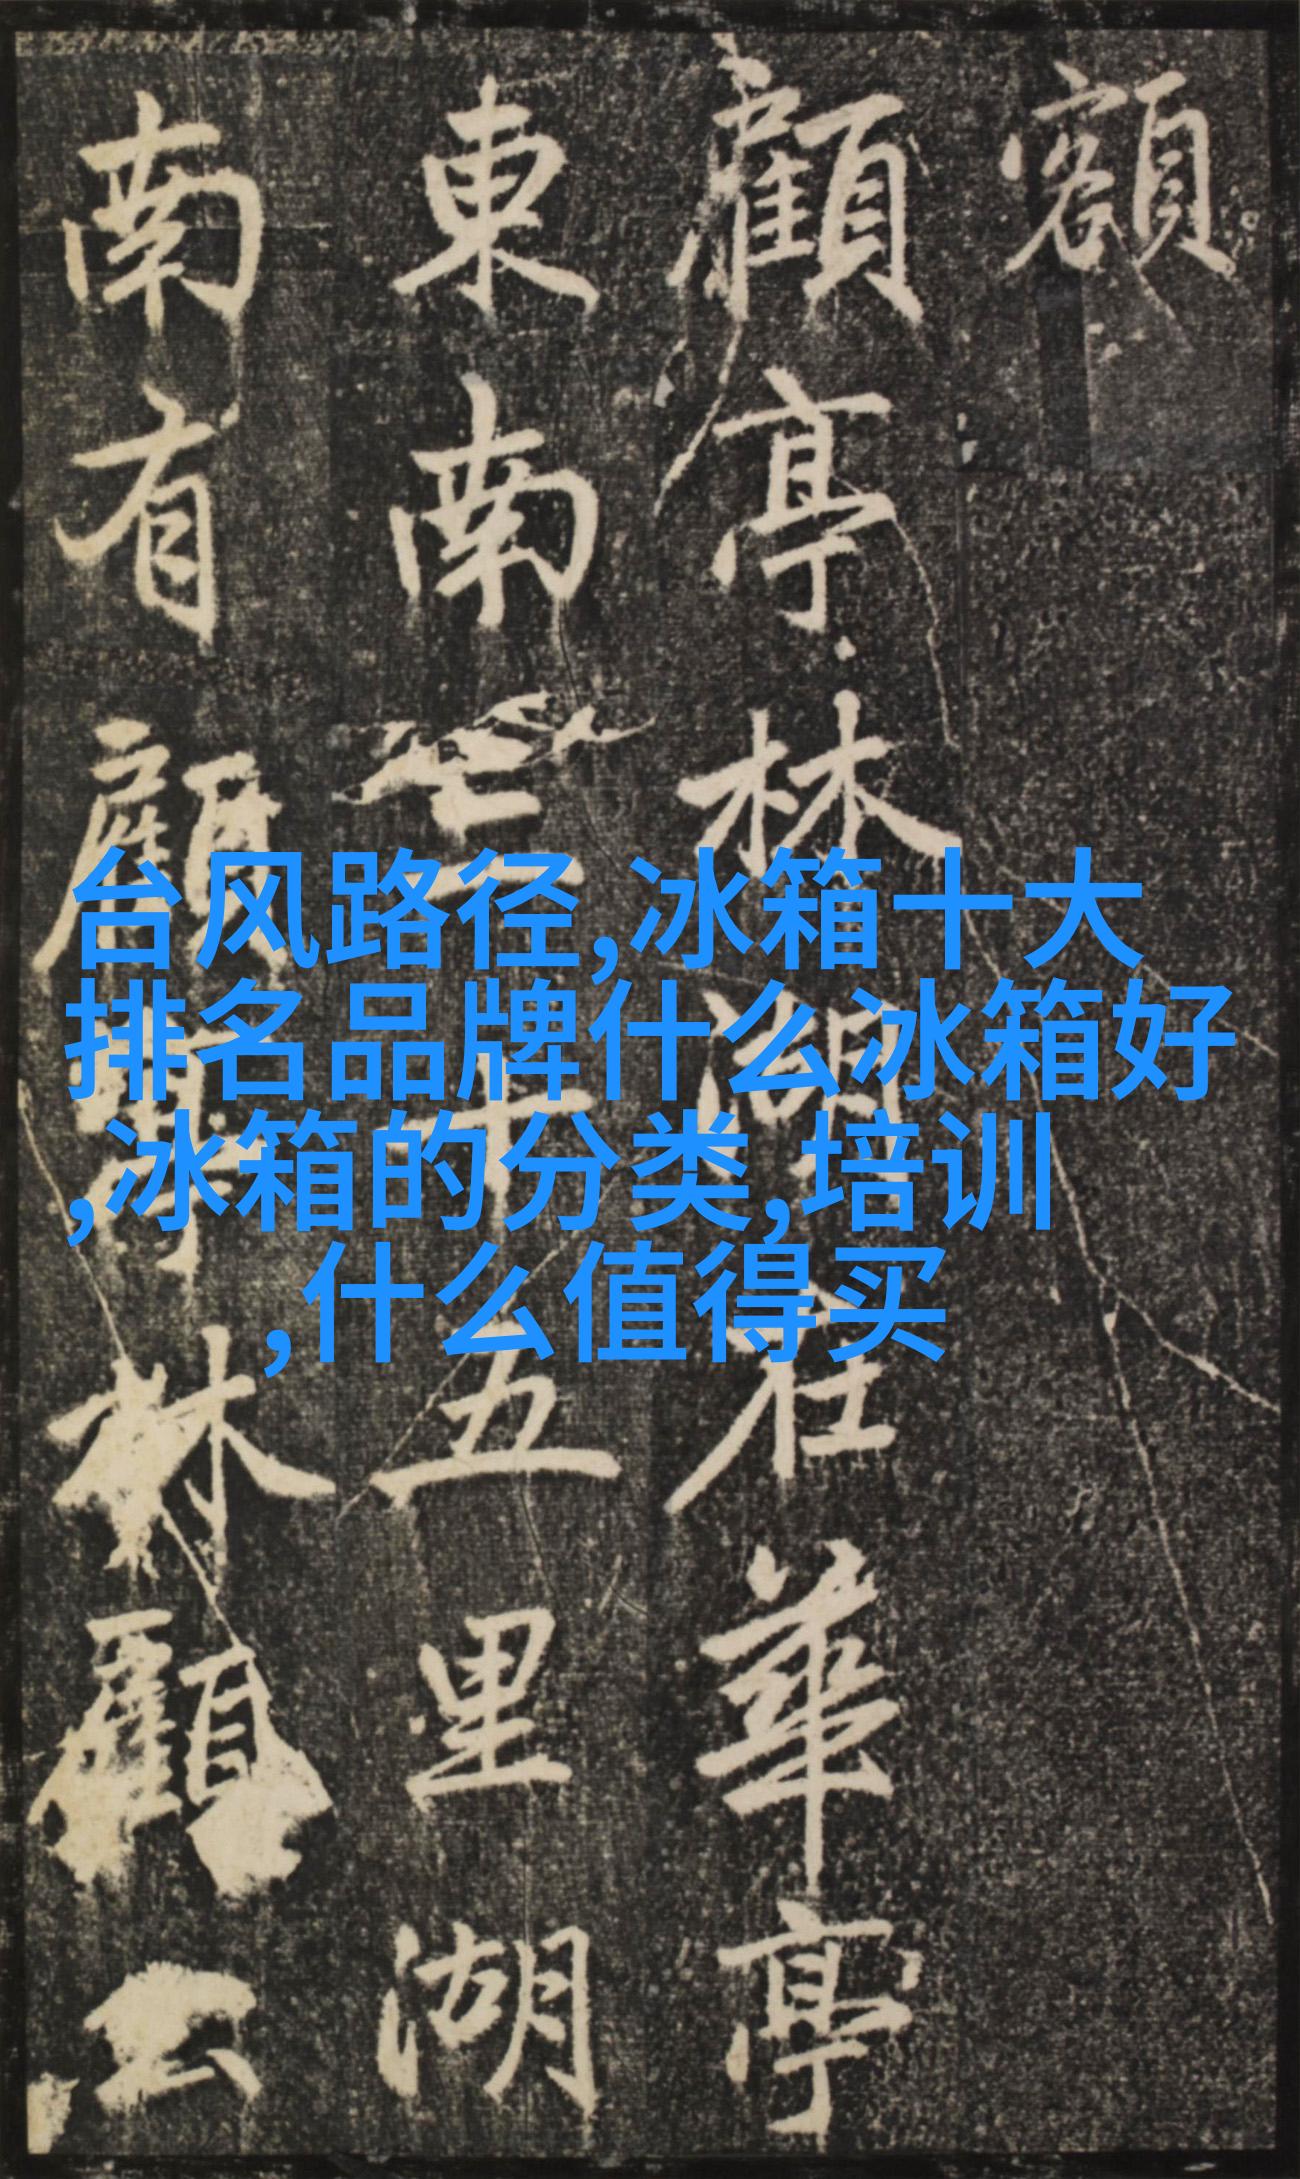 額
顧亭林湖在華亭
東南三十五里湖
南有顧亭林顧公
台风路径,冰箱十大
排名品牌什么冰箱好
,冰箱的分类,培训
,什么值得买